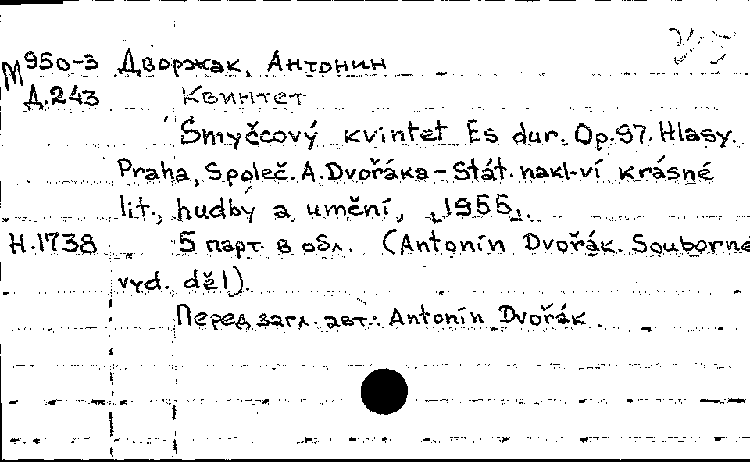 М 950-3 Дворжак, Антонин
Д.243 Квинтет
Smyčcový kvintet Es dur. Op.97. Hlasy.
Praha, Společ. A. Dvořáka – Stát. nakl-ví krásné
lit., hudby a umění, 1955.
Н.1738 5 парт. в обл. (Antonín Dvořák. Souborné
vyd. děl).
Перед загл. авт.: Antonín Dvořák.